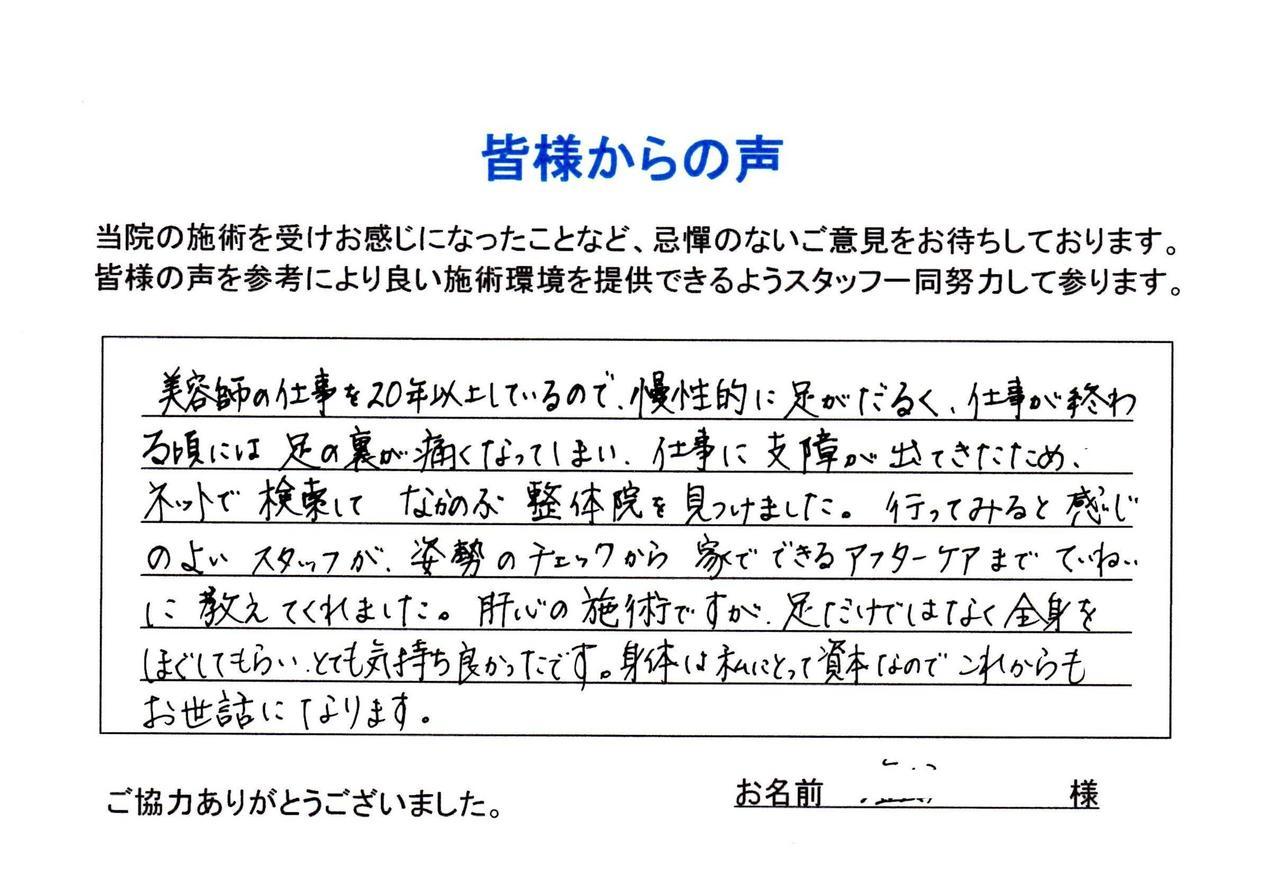 皆様からの声
当院の施術を受けお感じになったことなど、忌憚のないご意見をお待ちしております。
皆様の声を参考により良い施術環境を提供できるようスタッフ一同努力して参ります。
美容師の仕事を20年以上しているので、慢性的に足がだるく、仕事が終わ
る頃には足の裏が痛くなってしまい、仕事に支障が出てきたため、
ネットで検索してなかのぶ整体院を見つけました。行ってみると感じ
のよいスタッフが、姿勢のチェックから家でできるアフターケアまでていねい
に教えてくれました。肝心の施術ですが、足だけではなく全身を
ほぐしてもらい、とても気持ち良かったです。身体は私にとって資本なのでこれからも
お世話になります。
ご協力ありがとうございました。
お名前 様